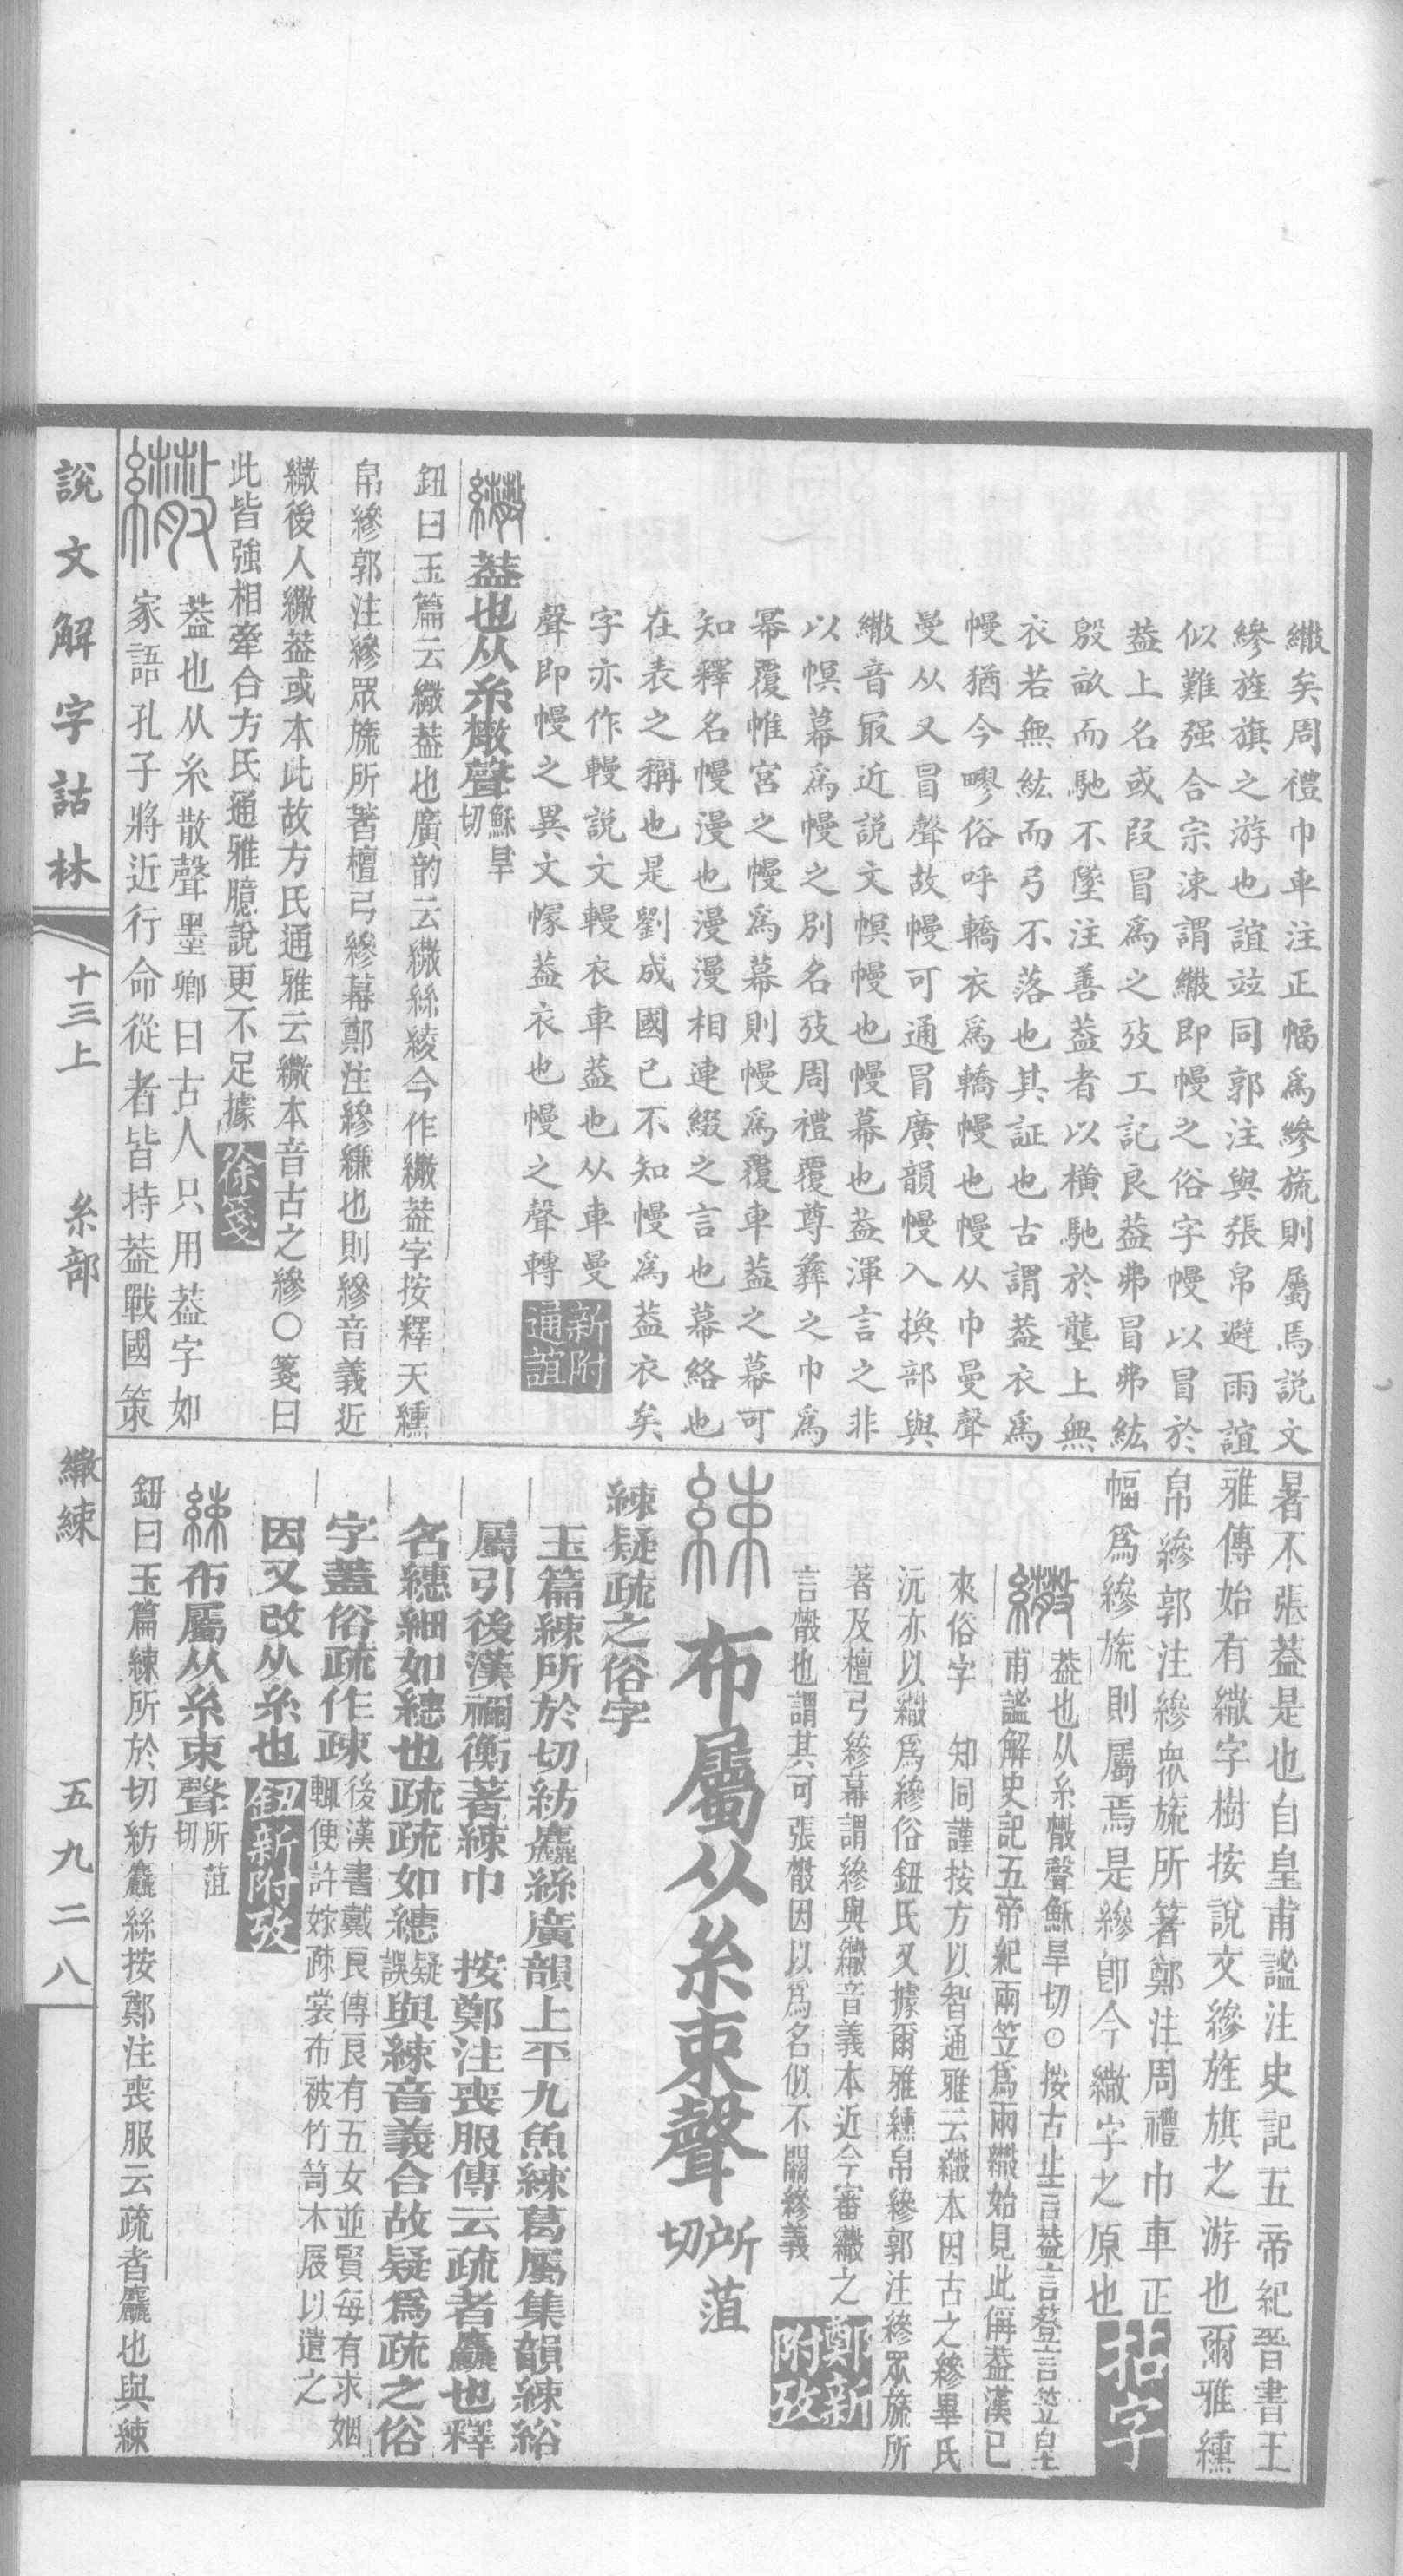 繖矣周禮巾車注正幅爲縿旒則屬焉説文
縿旌旗之游也誼竝同郭注與張帛避雨誼
似難强合宗涑謂繖即幔之俗字幔以冒於
葢上名或叚冒爲之攷工記良葢弗冒弗紘
殷畝而馳不墜注善葢者以橫馳於壟上無
衣若無紘而弓不落也其証也古謂葢衣爲
幔猶今疁俗呼轎衣爲轎幔也幔从巾曼聲
曼从又冒聲故幔可通冒廣韻幔入換部與
繖音㝡近説文幎幔也幔幕也葢渾言之非
以幎幕爲幔之別名攷周禮覆尊彝之巾爲
冪覆帷宮之幔爲幕則幔爲覆車葢之幕可
知釋名幔漫也漫漫相連綴之言也幕絡也
在表之稱也是劉成國已不知幔爲葢衣矣
字亦作轋説文轋衣車葢也从車曼
聲即幔之異文幏葢衣也幔之聲轉
新附通誼
繖葢也从糸㪔聲
穌旱切
鈕曰玉篇云繖葢也廣韵云繖絲綾今作繖葢字按釋天纁
帛縿郭注縿眾旒所著檀弓縿幕鄭注縿縑也則縿音義近
繖後人繖葢或本此故方氏通雅云繖本音古之縿○箋曰
此皆強相牽合方氏通雅臆說更不足據
徐箋
繖
葢也从糸散聲墨卿曰古人只用葢字如
家語孔子將近行命從者皆持葢戰國策
暑不張葢是也自皇甫謐注史記五帝紀晉書王
雅傳始有繖字樹按說文縿旌旗之游也爾雅纁
帛縿郭注縿眾旒所箸鄭注周禮巾車正
幅爲縿旒則屬焉是縿卽今繖字之原也
拈字
繖
葢也从糸㪔聲穌旱切○按古止言葢言簦言笠皇
甫謐解史記五帝紀兩笠爲兩繖始見此偁葢漢已
來俗字　知同謹按方以智通雅云繖本因古之縿畢氏
沅亦以繖爲縿俗鈕氏又據爾雅纁帛縿郭注縿眾旒所
著及檀弓縿幕謂縿與繖音義本近今審繖之
言㪔也謂其可張㪔因以爲名似不關縿義
鄭新附攷
綀布屬从糸束聲
所菹切
綀疑疏之俗字
玉篇綀所於切紡麤絲廣韻上平九魚綀葛屬集韻綀綌
屬引後漢禰衡著綀巾　按鄭注喪服傳云疏者麤也釋
名繐細如繐也疏疏如繐
疑誤
與綀音義合故疑爲疏之俗
字蓋俗疏作疎
後漢書戴良傳良有五女並賢每有求姻
輒便許嫁疎裳布被竹笥木屐以遣之
因又改从糸也
鈕新附攷
綀布屬从糸束聲
所菹切
鈕曰玉篇綀所於切紡麤絲按鄭注喪服云疏者麤也與綀
說文解字詁林
十三上
糸部
繖綀
五九二八